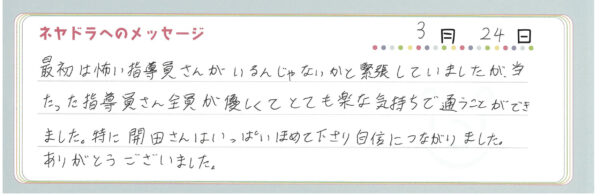 ネヤドラへのメッセージ 3月 24日
最初は怖い指導員さんがいるんじゃないかと緊張していましたが、当
たった指導員さん全員が優しくてとても楽な気持ちで通うことができ
ました。特に開田さんはいっぱいほめて下さり自信につながりました。
ありがとうございました。